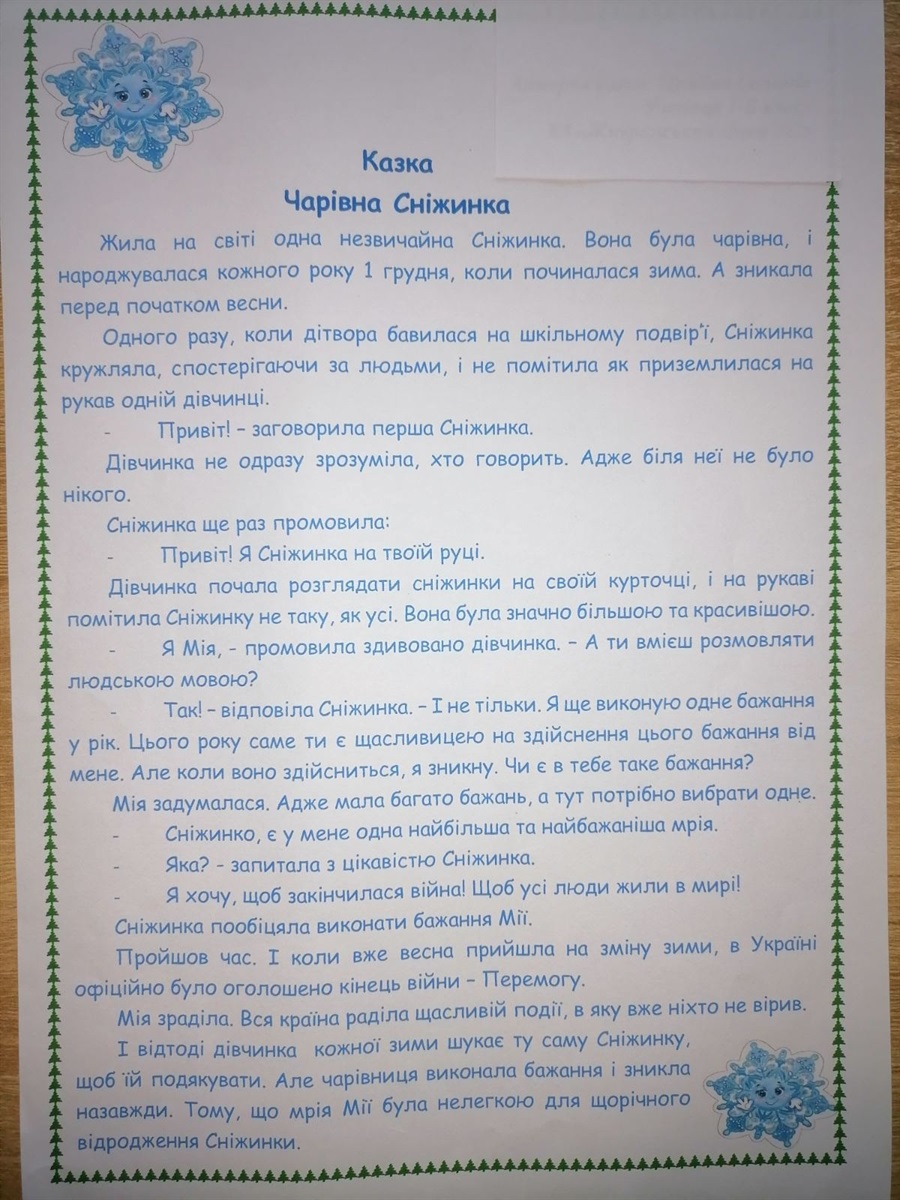 Казка
Чарівна Сніжинка
Жила на світі одна незвичайна Сніжинка. Вона була чарівна, і
народжувалася кожного року 1 грудня, коли починалася зима. А зникала
перед початком весни.
Одного разу, коли дітвора бавилася на шкільному подвір’ї, Сніжинка
кружляла, спостерігаючи за людьми, і не помітила як приземлилася на
рукав одній дівчинці.
- Привіт! – заговорила перша Сніжинка.
Дівчинка не одразу зрозуміла, хто говорить. Адже біля неї не було
нікого.
Сніжинка ще раз промовила:
- Привіт! Я Сніжинка на твоїй руці.
Дівчинка почала розглядати сніжинки на своїй курточці, і на рукаві
помітила Сніжинку не таку, як усі. Вона була значно більшою та красивішою.
- Я Мія, - промовила здивовано дівчинка. – А ти вмієш розмовляти
людською мовою?
- Так! – відповіла Сніжинка. – І не тільки. Я ще виконую одне бажання
у рік. Цього року саме ти є щасливицею на здійснення цього бажання від
мене. Але коли воно здійсниться, я зникну. Чи є в тебе таке бажання?
Мія задумалася. Адже мала багато бажань, а тут потрібно вибрати одне.
- Сніжинко, є у мене одна найбільша та найбажаніша мрія.
- Яка? - запитала з цікавістю Сніжинка.
- Я хочу, щоб закінчилася війна! Щоб усі люди жили в мирі!
Сніжинка пообіцяла виконати бажання Мії.
Пройшов час. І коли вже весна прийшла на зміну зими, в Україні
офіційно було оголошено кінець війни – Перемогу.
Мія зраділа. Вся країна раділа щасливій події, в яку вже ніхто не вірив.
І відтоді дівчинка кожної зими шукає ту саму Сніжинку,
щоб їй подякувати. Але чарівниця виконала бажання і зникла
назавжди. Тому, що мрія Мії була нелегкою для щорічного
відродження Сніжинки.